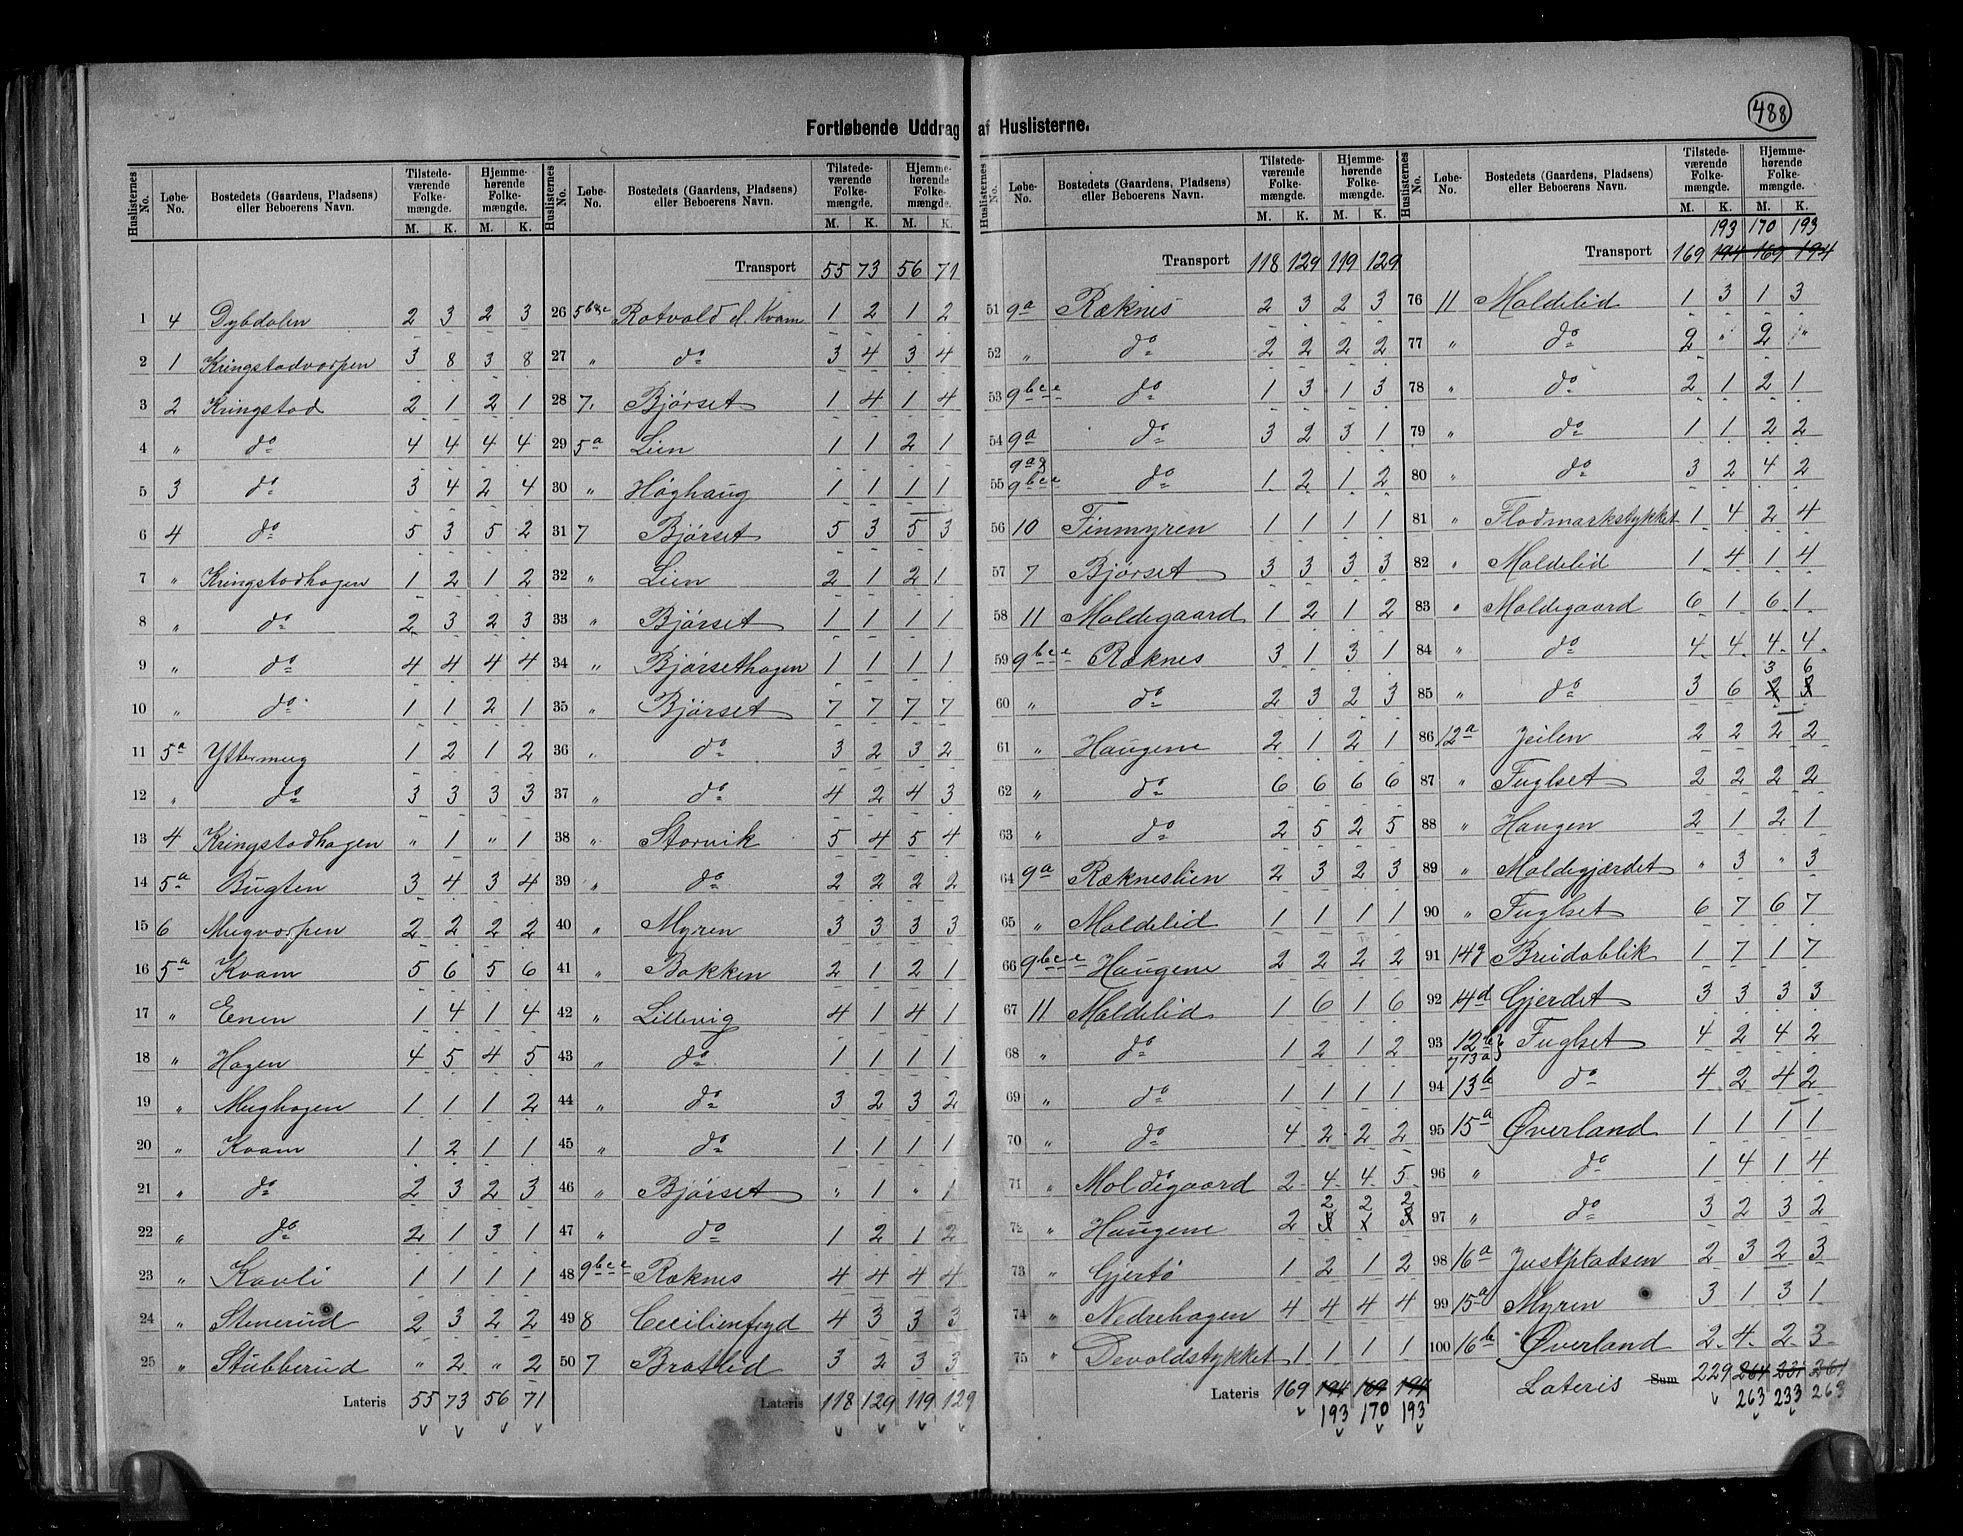 488
Fortløbende Uddrag af Huslisterne.
Huslisternes No. | Løbe-No. | Bostedets (Gaardens, Pladsens) eller Beboerens Navn. | Tilstedeværende Folkemængde. M. K. | Hjemmehørende Folkemængde. M. K.
1 4 Dybdalen 2 3 2 3
2 1 Kringstadvorpen 3 8 3 8
3 2 Kringstad 2 1 2 1
4 " do 4 4 4 4
5 3 do 3 4 2 4
6 4 do 5 3 5 2
7 " Kringstadhagen 1 2 1 2
8 " do 2 3 2 3
9 " do 4 4 4 4
10 " do 1 1 2 1
11 5a Yttermug 1 2 1 2
12 " do 3 3 3 3
13 4 Kringstadhagen " 1 " 1
14 5a Bugten 3 4 3 4
15 6 Mugvorpen 2 2 2 2
16 5a Kvam 5 6 5 6
17 " Enen 1 4 1 4
18 " Hagen 4 5 4 5
19 " Mughagen 1 1 1 2
20 " Kvam 1 2 1 1
21 " do 2 3 2 3
22 " do 2 1 3 1
23 " Kavli 1 1 1 1
24 " Stenerud 2 3 2 2
25 " Stubberud " 2 " 2
Lateris 55 73 56 71
Huslisternes No. | Løbe-No. | Bostedets (Gaardens, Pladsens) eller Beboerens Navn. | Tilstedeværende Folkemængde. M. K. | Hjemmehørende Folkemængde. M. K.
Transport 55 73 56 71
26 Rotvold Kvam 1 2 1 2
27 " do 3 4 3 4
28 7. Bjørset 1 4 1 4
29 5a Lien 1 1 2 1
30 " Høghaug 1 1 1 1
31 7 Bjørset 5 3 5 3
32 " Lien 2 1 2 1
33 " Bjørset 1 1 1 1
34 " Bjørsethagen 1 1 1 1
35 " Bjørset 7 7 7 7
36 " do 3 2 3 2
37 " do 4 2 4 3
38 " Storvik 5 4 5 4
39 " do 2 2 2 2
40 " Myren 3 3 3 3
41 " Bakken 2 1 2 1
42 " Lillevig 4 1 4 1
43 " do 1 1 1 1
44 " do 3 2 3 2
45 " do 1 1 1 1
46 " Bjørset " 1 " 1
47 " do 1 2 1 2
48 9bce Ræknes 4 4 4 4
49 8 Cecilienfryd 4 3 3 3
50 7 Bratlid 3 2 3 3
Lateris 118 129 119 129
Huslisternes No. | Løbe-No. | Bostedets (Gaardens, Pladsens) eller Beboerens Navn. | Tilstedeværende Folkemængde. M. K. | Hjemmehørende Folkemængde. M. K.
Transport 118 129 119 129
51 9a Ræknes 2 3 2 3
52 " do 2 2 2 2
53 9bce do 1 3 1 3
54 9a do 3 2 3 1
55 9a & 9bce do 1 2 1 2
56 10 Finmyren 1 1 1 1
57 7 Bjørset 3 3 3 3
58 11 Moldegaard 1 2 1 2
59 9bce Ræknes 3 1 3 1
60 " do 2 3 2 3
61 " Haugene 2 1 2 1
62 " do 6 6 6 6
63 " do 2 5 2 5
64 9a Rækneslien 2 3 2 3
65 " Moldelid 1 1 1 1
66 9bce Haugene 2 2 2 2
67 11 Moldelid 1 6 1 6
68 " do 1 2 1 2
69 " do 1 1 1 1
70 " do 4 2 2 2
71 " Moldegaard 2 4 4 5
72 " Haugene 2 2 2 2
73 " Gjertø 1 2 1 2
74 " Nedrehagen 4 4 4 4
75 " Devoldstykket 1 1 1 1
Lateris 169 194 169 194
193 170 193
Huslisternes No. | Løbe-No. | Bostedets (Gaardens, Pladsens) eller Beboerens Navn. | Tilstedeværende Folkemængde. M. K. | Hjemmehørende Folkemængde. M. K.
193 170 193
Transport 169 194 169 194
76 11 Moldelid 1 3 1 3
77 " do 2 " 2 "
78 " do 2 1 2 1
79 " do 1 1 2 2
80 " do 3 2 4 2
81 " Flodmarkstykket 1 4 2 4
82 " Moldelid 1 4 1 4
83 " Moldegaard 6 1 6 1
84 " do 4 4 4 4
3 6
85 " do 3 6 2 3
86 12a Jeilen 2 2 2 2
87 " Fuglset 2 2 2 2
88 " Haugen 2 1 2 1
89 " Moldegjærdet " 3 " 3
90 " Fuglset 6 7 6 7
91 Breidablik 1 7 1 7
92 14d Gjerdet 3 3 3 3
93 12b 13a Fuglset 4 2 4 2
94 13b do 4 2 4 2
95 15a Øverland 1 1 1 1
96 " do 1 4 1 4
97 " do 3 2 3 2
98 16a Justpladsen 2 3 2 3
99 15a Myren 3 1 3 1
100 16b Øverland 2 4 2 3
Lateris Sum 229 264 231 261
263 233 263